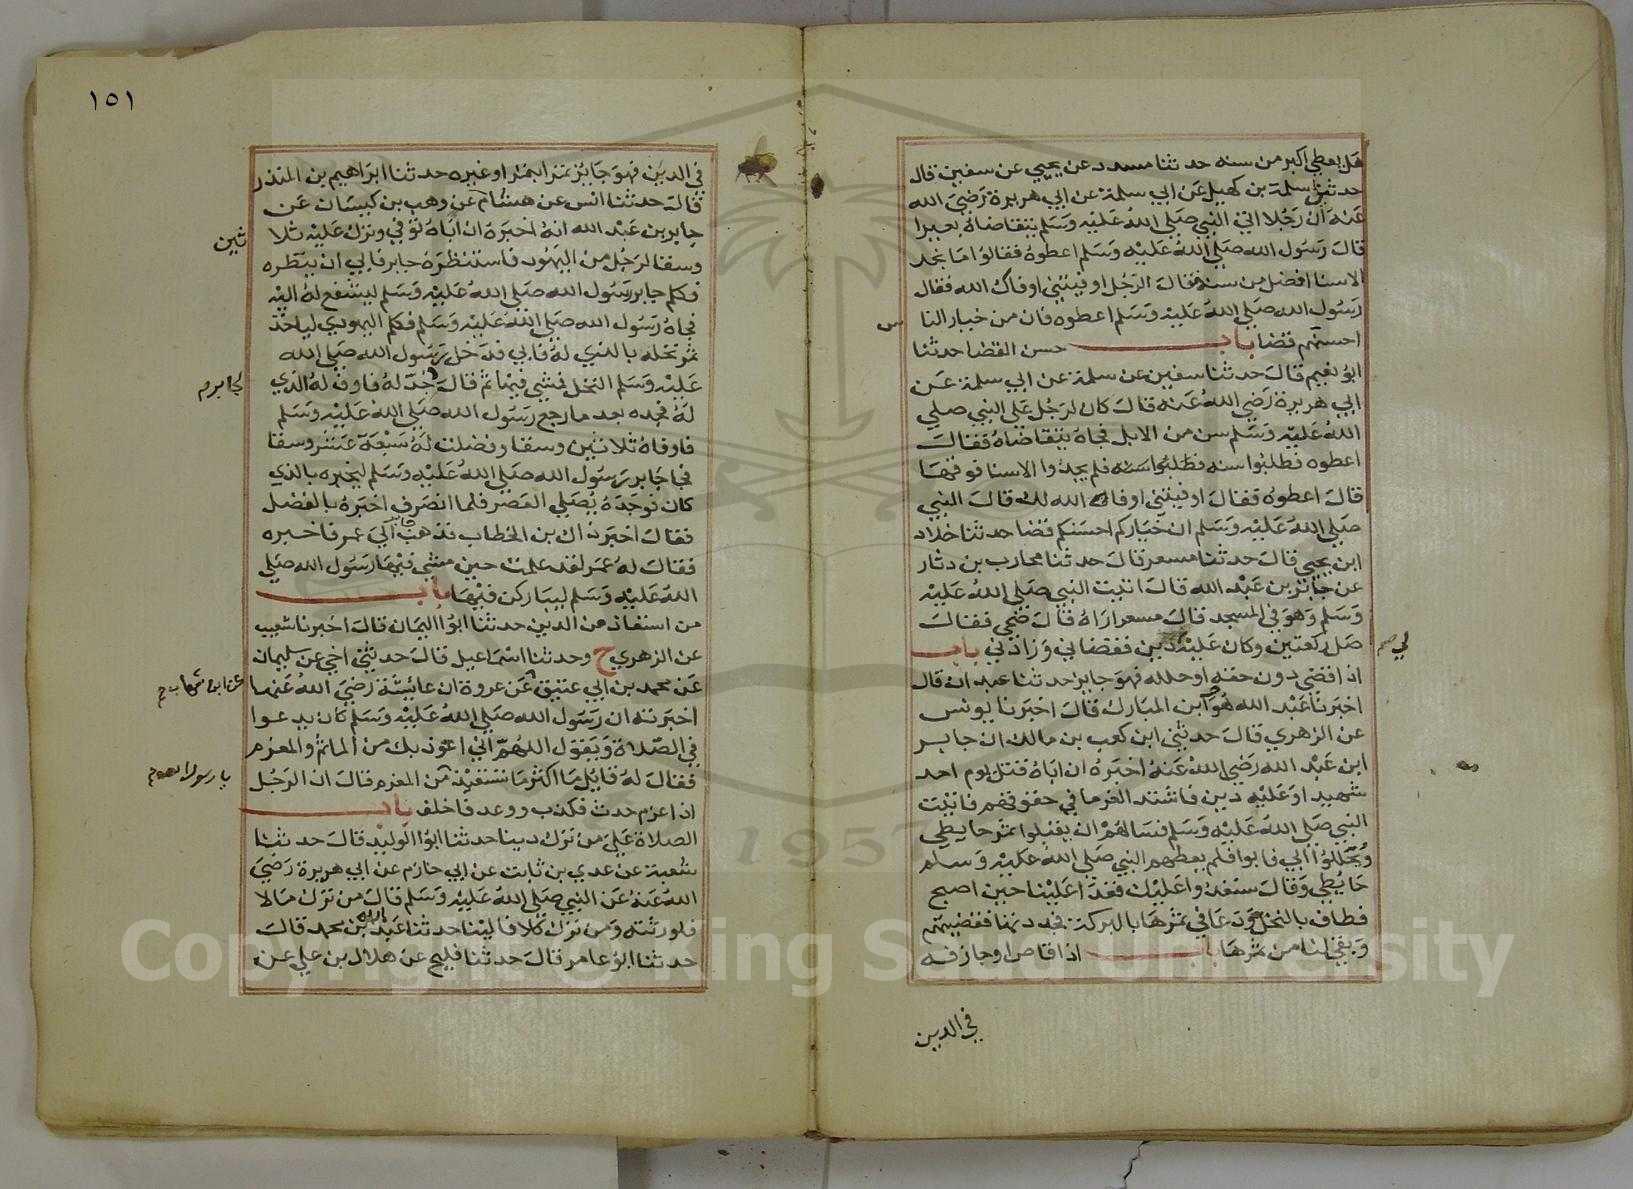 هل يعطي اكبر من سنه حدثنا مسدد عن يحيي عن سفين قال
حدثني سلمة بن كهيل عن ابي سلمة عن ابي هريرة رضي الله
عنه ان رجلا اتي النبي صلي الله عليه وسلم يتقاضاه بعيرا
قال رسول الله صلي الله عليه وسلم اعطوه فقالوا ما نجد
الا سنا افضل من سنه فقال الرجل اوفيتني اوفاك الله فقال
رسول الله صلي الله عليه وسلم اعطوه فان من خيار النا
س
احسنهم قضا باب حسن القضا حدثنا
ابو نعيم قال حدثنا سفين عن سلمة عن ابي سلمة عن
ابي هريرة رضي الله عنه قال كان لرجل علي النبي صلي
الله عليه وسلم سن من الابل فجاه يتقاضاه فقال
اعطوه فطلبوا سنه فلم يجدوا الا سنا فوقها
قال اعطوه فقال اوفيتني اوفاك الله لك قال النبي
صلي الله عليه وسلم ان خياركم احسنكم قضا حدثنا خلاد
ابن يحيي قال حدثنا مسعر قال حدثنا محارب بن دثار
عن جابر بن عبد الله قال اتيت النبي صلي الله عليه
وسلم وهو في المسجد قال مسعر اراه قال ضحي فقال
صل ركعتين وكان عليه دين فقضاني وزادني باب
لي
اذا قضي دون حقه او حلله فهو جايز حدثنا عبدان قال
اخبرنا عبد الله هو ابن المبارك قال اخبرنا يونس
عن الزهري قال حدثني ابن كعب بن مالك ان جابر
ابن عبد الله رضي الله عنه اخبره ان اباه قتل يوم احد
شهيدا وعليه دين فاشتد الغرما في حقوقهم فاتيت
النبي صلي الله عليه وسلم فسالهم ان يقبلوا تمر حايطي
ويحللوا ابي فابوا فلم يعطهم النبي صلي الله عليه وسلم
حايطي وقال سنغدوا عليك فغدا علينا حين اصبح
فطاف بالنخل ودعا في ثمرها بالبركة فجددتها فقضيتهم
وبقي لنا من تمرها باب اذا قاص او جازفه
في الدين
١٥١
في الدين فهو جايز تمرا بتمر او غيره حدثنا ابراهيم بن المنذر
قال حدثنا انس عن هشام عن وهب بن كيسان عن
جابر بن عبد الله انه اخبره ان اباه توفي وترك عليه ثلا
ثين
وسقا لرجل من اليهود فاستنظره جابر فابي ان ينظره
فكلم جابر رسول الله صلي الله عليه وسلم ليشفع له اليه
فجاه رسول الله صلي الله عليه وسلم فكلم اليهودي لياخذ
ثمر نخله بالذي له فابي فدخل رسول الله صلي الله
عليه وسلم النخل فمشي فيها ثم قال جد له فاوف له الذي
لجابر م
له فجده بعد ما رجع رسول الله صلي الله عليه وسلم
فاوفاه ثلاثين وسقا وفضلت له سبعة عشر وسقا
فجا جابر رسول الله صلي الله عليه وسلم ليخبره بالذي
كان فوجده يصلي العصر فلما انصرف اخبره بالفضل
فقال اخبر ذاك بن الخطاب فذهب جابر الي عمر فاخبره
فقال له عمر لقد علمت حين مشي فيها رسول الله صلي
الله عليه وسلم ليباركن فيها باب
من استعاذ من الدين حدثنا ابو اليمان قال اخبرنا شعيب
عن الزهري ح وحدثنا اسماعيل قال حدثني اخي عن سليمان
عن محمد بن ابي عتيق عن عروة ان عائشة رضي الله عنها
عن ابن شهاب م
اخبرته ان رسول الله صلي الله عليه وسلم كان يدعوا
في الصلاة ويقول اللهم اني اعوذ بك من الماثم والمغرم
فقال له قايل ما اكثر ما تستعيذ من المغرم قال ان الرجل
يا رسول الله م
اذا غرم حدث فكذب ووعد فاخلف باب
الصلاة علي من ترك دينا حدثنا ابو الوليد قال حدثنا
شعبة عن عدي بن ثابت عن ابي حازم عن ابي هريرة رضي
الله عنه عن النبي صلي الله عليه وسلم قال من ترك مالا
فلورثته ومن ترك كلا فالينا حدثنا عبد الله بن محمد قال
حدثنا ابو عامر قال حدثنا فليح عن هلال بن علي عن
1957
Copyright © King Saud University